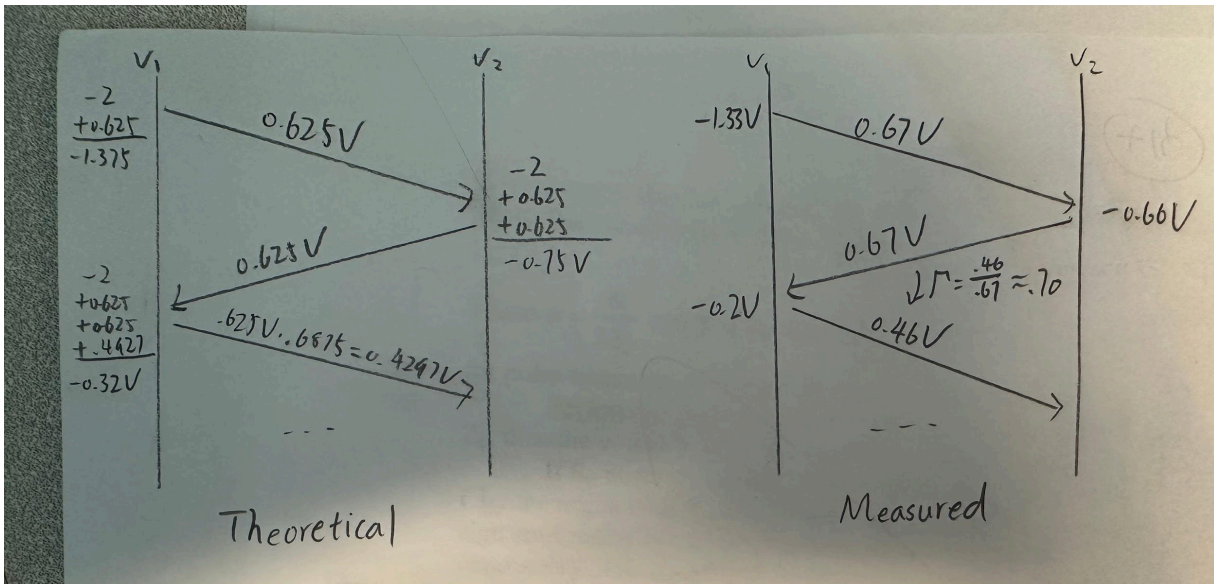 V1
V2
-2
+0.625
-1.375
0.625V
-2
+0.625
+0.625
-0.75V
0.625V
-2
+0.625
+0.625
+.4927
-0.32V
.625V·.6875=0.4297V
- - -
Theoretical
V1
V2
-1.33V
0.67V
-0.66V
0.67V
Γ=.46/.67≈.70
-0.2V
0.46V
- - -
Measured